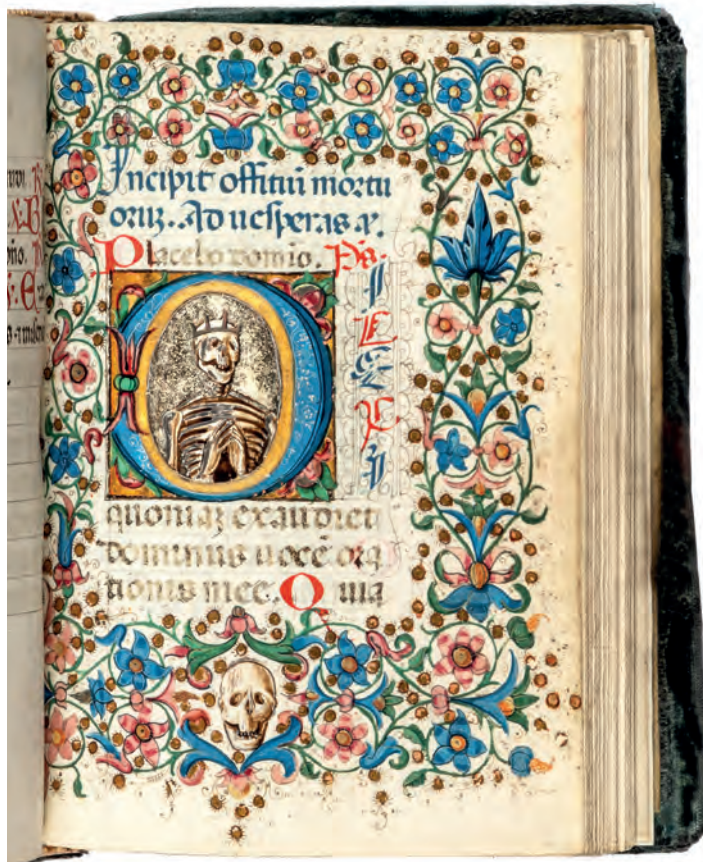 Incipit offitiū mortu
oruꝫ. Ad uesperas a.
Placebo domio. Ps.
D
I
L
E
X
I
quoniaꝫ exaudiet
dominus uocē ora
tionis mee. Quia